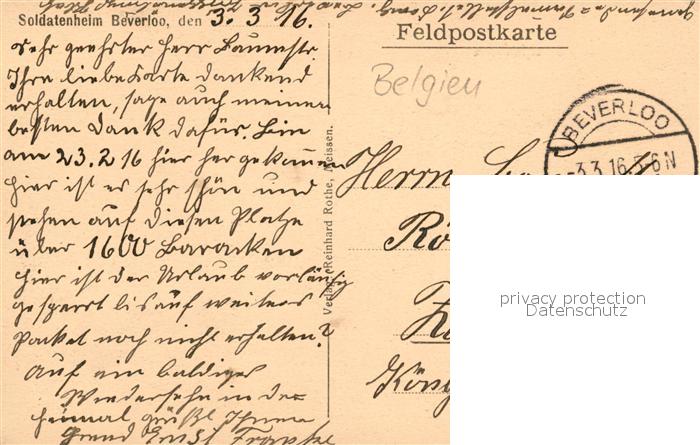 Soldatenheim Beverloo, den 3.3.16.
Sehr geehrter Herr Baumstr.
Ihre liebe Karte dankend
erhalten, sage auch meinen
besten Dank dafür. Bin
am 23.2.16 hier her gekommen
hier ist es sehr schön und
stehen auf diesem Platze
über 1600 Baracken
hier ist der Urlaub vorläufig
gesperrt bis auf weiteres
Packet noch nicht erhalten?
Auf ein baldiges
Wiedersehn in der
Heimat grüßt Ihnen
Ernst Franke
Verlag: Reinhard Rothe, Meissen.
Feldpostkarte
Belgien
BEVERLOO
3.3.16.5-6N
Herrn
Kön
privacy protection
Datenschutz